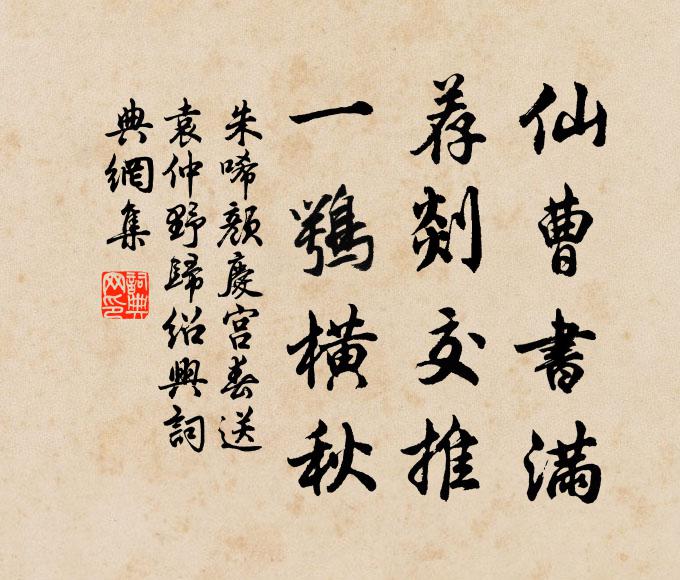 仙曹書滿
荐剡交推
一鶚橫秋
朱唏顏慶宮春送
袁仲野歸紹興詞
典網集
詞典網印